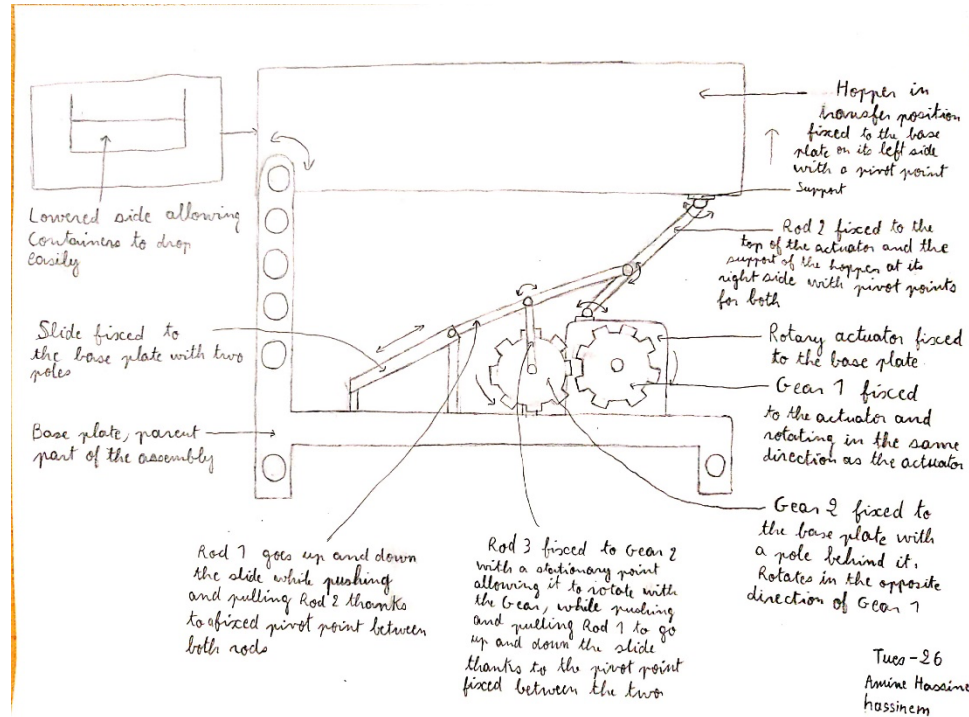 Hopper in
transfer position
fixed to the base
plate on its left side
with a pivot point
Support
Lowered side allowing
Containers to drop
easily
Rod 2 fixed to the
top of the actuator and the
support of the hopper at its
right side with pivot points
for both
Slide fixed to
the base plate with two
poles
Rotary actuator fixed
to the base plate
Gear 1 fixed
to the actuator and
rotating in the same
direction as the actuator
Base plate, parent
part of the assembly
Gear 2 fixed to
the base plate with
a pole behind it.
Rotates in the opposite
direction of Gear 1
Rod 1 goes up and down
the slide while pushing
and pulling Rod 2 thanks
to a fixed pivot point between
both rods
Rod 3 fixed to Gear 2
with a stationary point
allowing it to rotate with
the Gear, while pushing
and pulling Rod 1 to go
up and down the slide
thanks to the pivot point
fixed between the two
Tues-26
Amine Hassine
hassinem